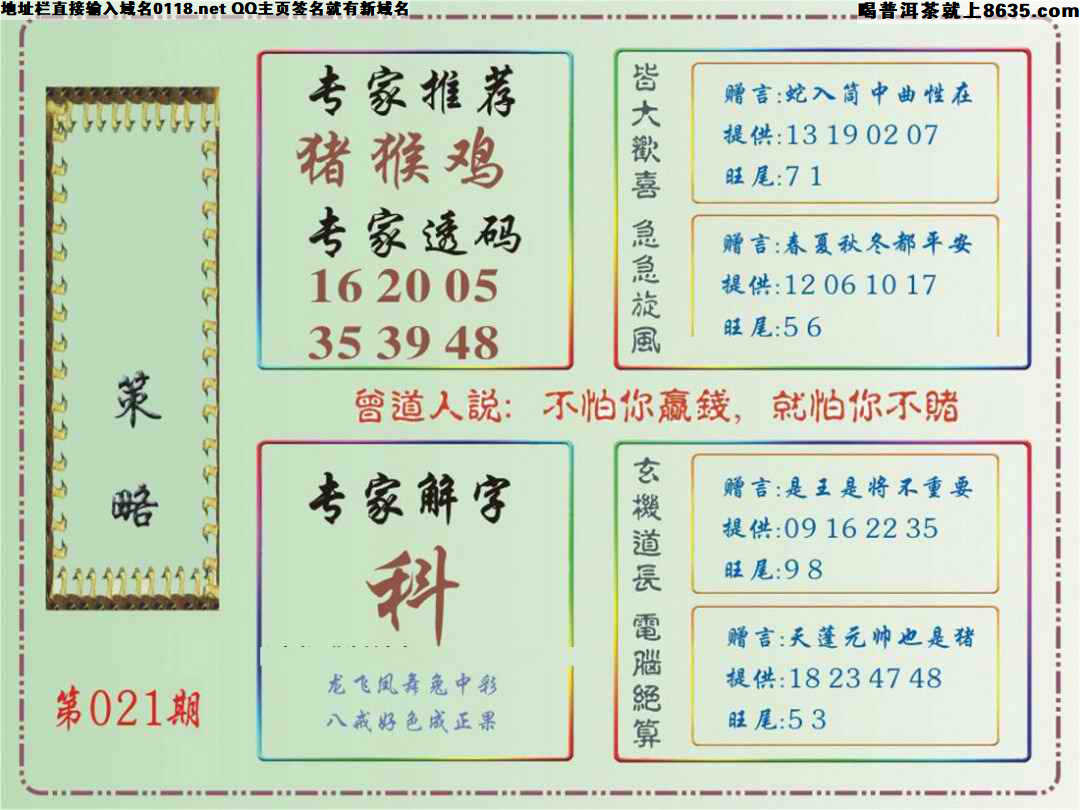 地址栏直接输入域名0118.net QQ主页签名就有新域名
喝普洱茶就上8635.com
策略
第021期
专家推荐
猪猴鸡
专家透码
16 20 05
35 39 48
皆大歡喜
赠言:蛇入筒中曲性在
提供:13 19 02 07
旺尾:7 1
急急旋風
赠言:春夏秋冬都平安
提供:12 06 10 17
旺尾:5 6
曾道人説: 不怕你贏錢, 就怕你不賭
专家解字
科
龙飞凤舞兔中彩
八戒好色成正果
玄機道長
赠言:是王是将不重要
提供:09 16 22 35
旺尾:9 8
電腦絕算
赠言:天蓬元帅也是猪
提供:18 23 47 48
旺尾:5 3